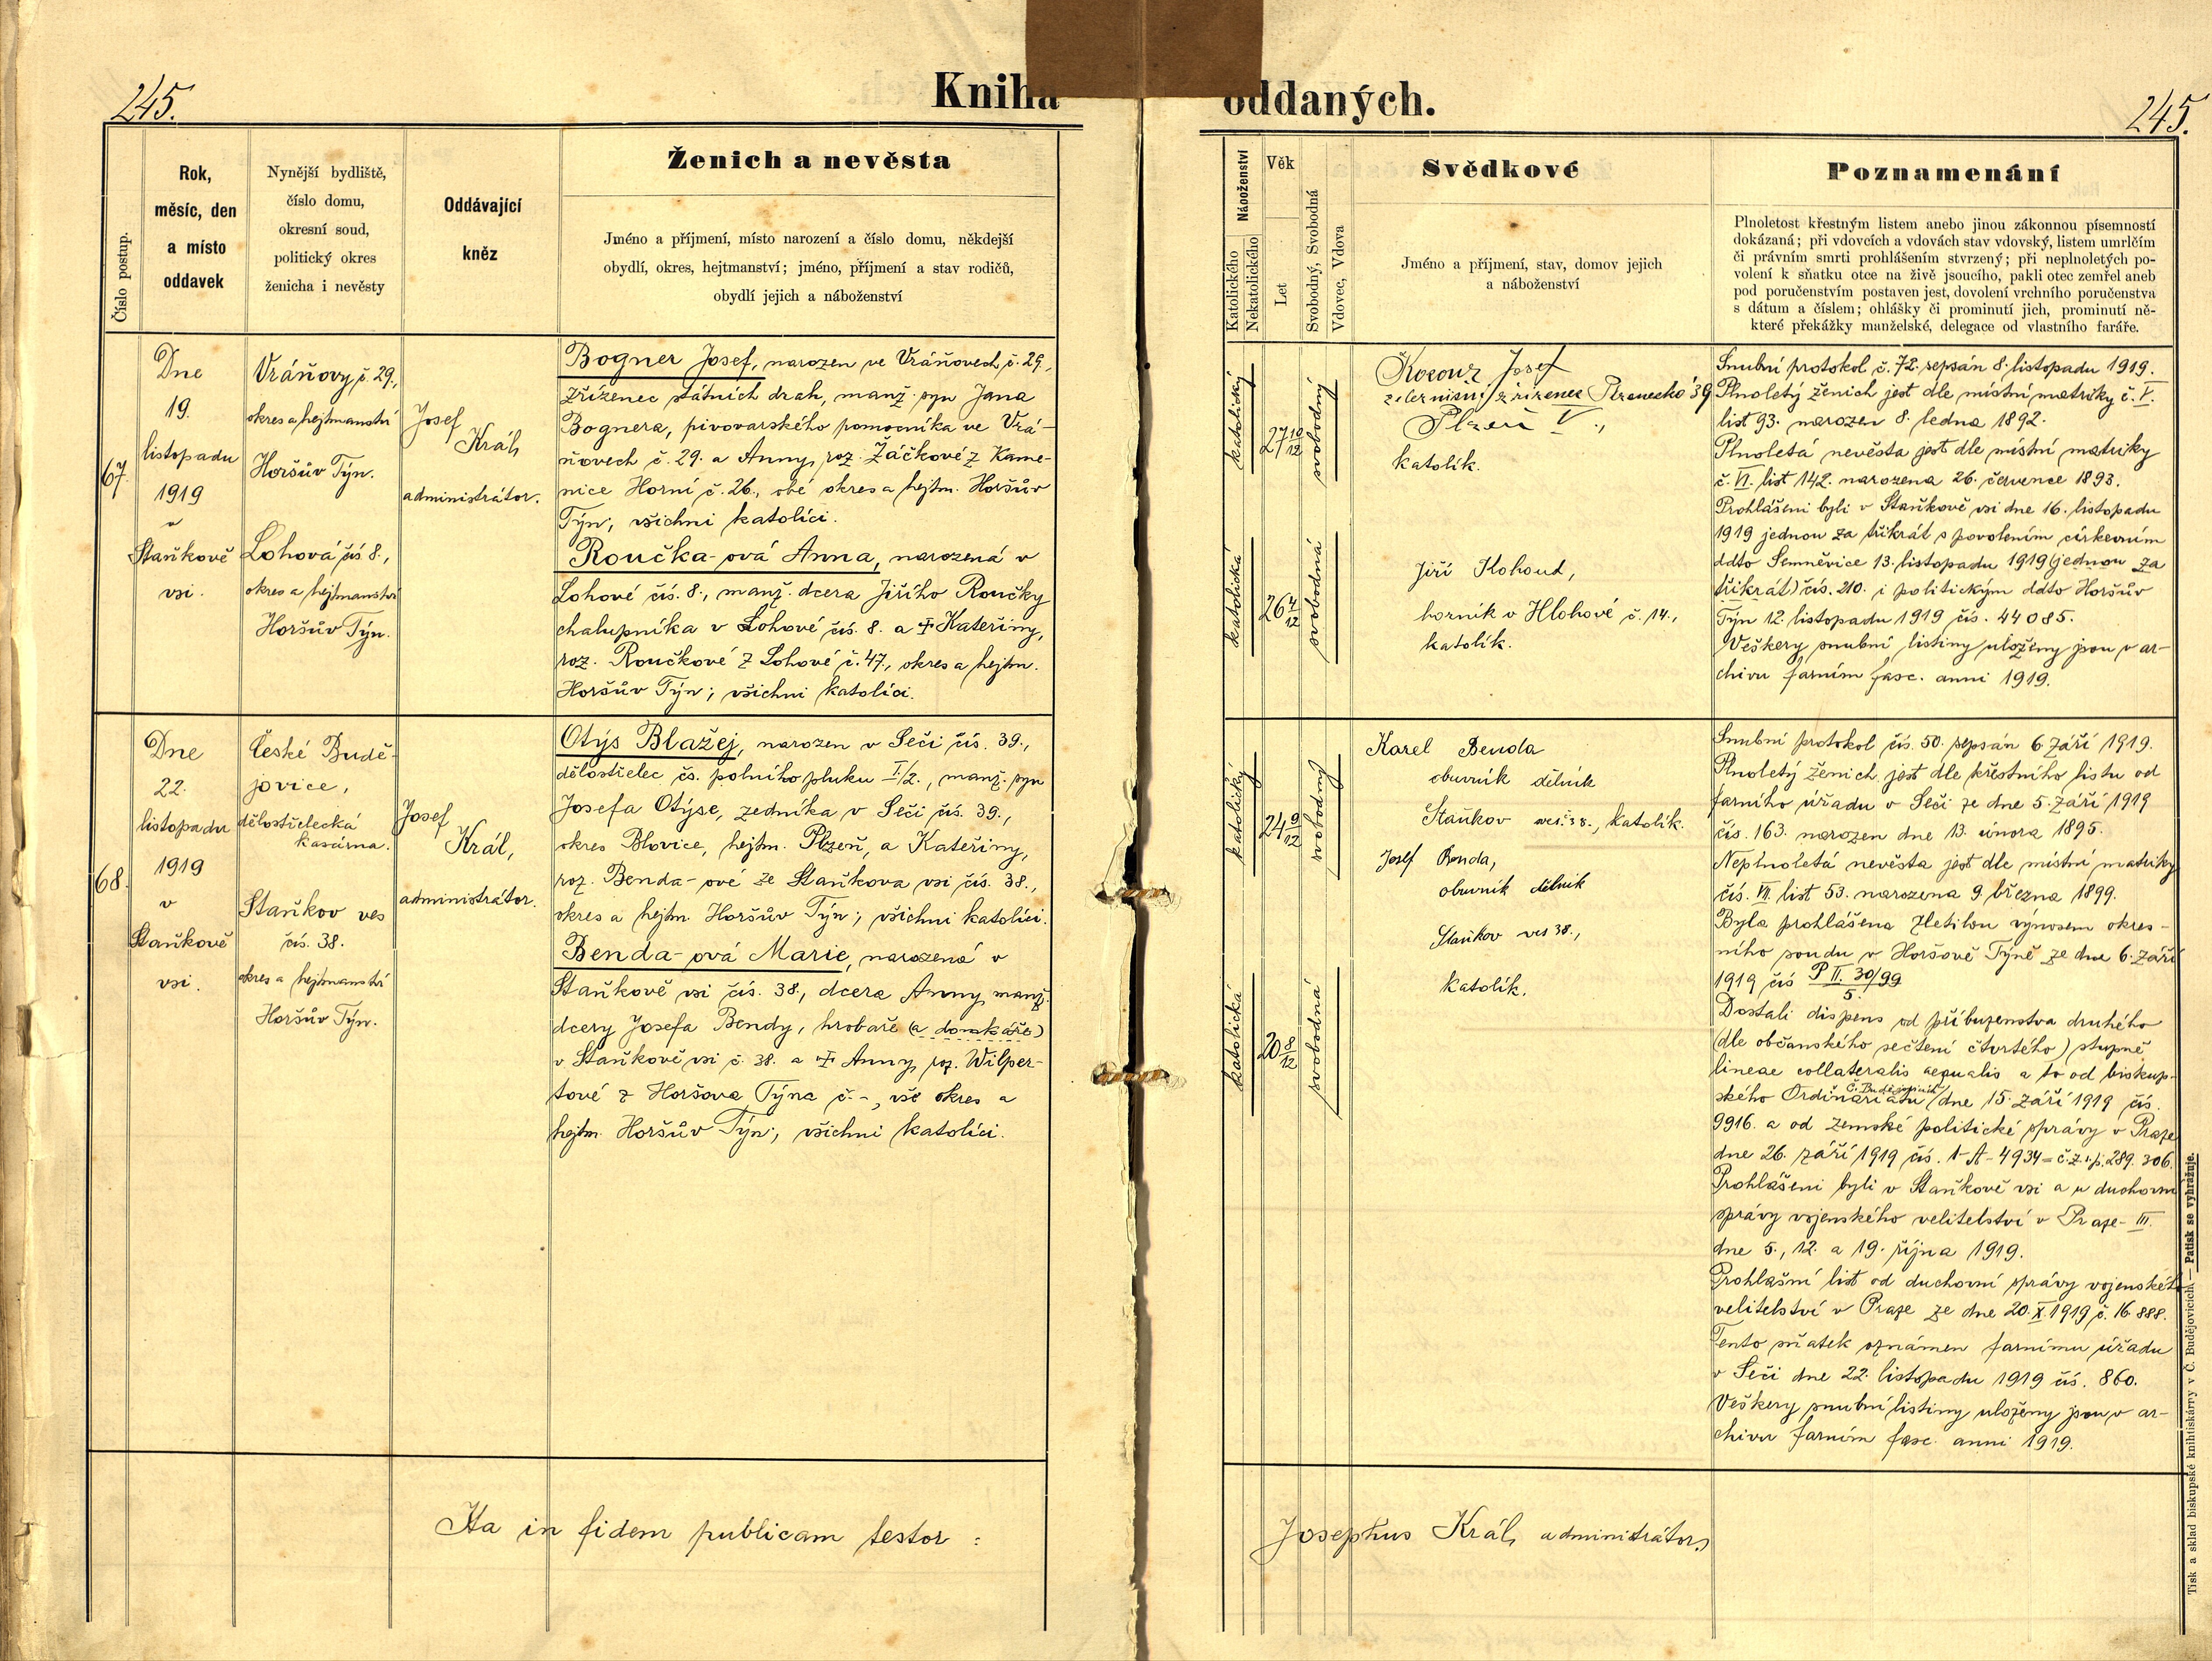 245.
Kniha oddaných.
245.
Číslo postup.
Rok,
měsíc, den
a místo
oddavek
Nynější bydliště,
číslo domu,
okresní soud,
politický okres
ženicha i nevěsty
Oddávající
kněz
Ženich a nevěsta
Jméno a příjmení, místo narození a číslo domu, někdejší
obydlí, okres, hejtmanství; jméno, příjmení a stav rodičů,
obydlí jejich a náboženství
Náboženství
Katolického
Nekatolického
Věk
Let
Svobodný, Svobodná
Vdovec, Vdova
Svědkové
Jméno a příjmení, stav, domov jejich
a náboženství
Poznamenání
Plnoletost křestným listem anebo jinou zákonnou písemností
dokázaná; při vdovcích a vdovách stav vdovský, listem umrlčím
či právním smrti prohlášením stvrzený; při neplnoletých po-
volení k sňatku otce na živě jsoucího, pakli otec zemřel aneb
pod poručenstvím postaven jest, dovolení vrchního poručenstva
s dátum a číslem; ohlášky či prominutí jich, prominutí ně-
které překážky manželské, delegace od vlastního faráře.
67.
Dne
19.
listopadu
1919
v
Staňkově
vsi.
Vráňovy č. 29.,
okres a hejtmanství
Horšův Týn.
Lohová čís 8.,
okres a hejtmanství
Horšův Týn.
Josef
Král,
administrátor.
Bogner Josef, narozen ve Vráňovech č. 29.,
zřízenec státních drah, manž. syn Jana
Bognera, pivovarského pomocníka ve Vrá-
ňovech č. 29. a Anny, roz. Žáčkové z Kame-
nice Horní č. 26., obé okres a hejtm. Horšův
Týn; všichni katolíci.
Roučka-ová Anna, narozená v
Lohové čís. 8., manž. dcera Jiřího Roučky
chalupníka v Lohové čís. 8. a † Kateřiny,
roz. Roučkové z Lohové č. 47., okres a hejtm.
Horšův Týn; všichni katolíci.
katolický
27 10/12
svobodný
katolická
26 4/12
svobodná
Josef
zřízenec 39
Plzeň V.,
katolík.
Jiří Kohout,
horník v Hlohové č. 14.,
katolík.
Snubní protokol č. 72. sepsán 8. listopadu 1919.
Plnoletý ženich jest dle místní matriky č. V.
list 93. narozen 8. ledna 1892.
Plnoletá nevěsta jest dle místní matriky
č. VI. list 142. narozena 26. července 1893.
Prohlášeni byli v Staňkově vsi dne 16. listopadu
1919 jednou za třikrát s povolením církevním
ddto Semněvice 13. listopadu 1919 (jednou za
třikrát) čís. 210. i politickým ddto Horšův
Týn 12. listopadu 1919 čís. 44085.
Veškery snubní listiny uloženy jsou v ar-
chivu farním fasc. anni 1919.
68.
Dne
22.
listopadu
1919
v
Staňkově
vsi.
České Budě-
jovice,
dělostřelecká
kasárna.
Staňkov ves
čís. 38.
okres a hejtmanství
Horšův Týn.
Josef
Král,
administrátor.
Otýs Blažej, narozen v Seči čís. 39.,
dělostřelec čs. polního pluku I/2., manž. syn
Josefa Otýse, zedníka v Seči čís. 39.,
okres Blovice, hejtm. Plzeň, a Kateřiny,
roz. Benda-ové ze Staňkova vsi čís. 38.,
okres a hejtm. Horšův Týn; všichni katolíci.
Benda-ová Marie, narozená v
Staňkově vsi čís. 38., dcera Anny, manž.
dcery Josefa Bendy, hrobaře (a domkáře)
v Staňkově vsi č. 38. a † Anny, roz. Wilper-
tové z Horšova Týna č. -, vše okres a
hejtm. Horšův Týn; všichni katolíci.
katolický
24 9/12
svobodný
katolická
20 8/12
svobodná
Karel Benda
obuvník dělník
Staňkov ves č. 38., katolík.
Josef Benda,
obuvník dělník
Staňkov ves 38.,
katolík.
Snubní protokol čís. 50. sepsán 6. září 1919.
Plnoletý ženich jest dle křestního listu od
farního úřadu v Seči ze dne 5. září 1919
čís. 163. narozen dne 13. února 1895.
Neplnoletá nevěsta jest dle místní matriky
čís. VII. list 53. narozena 9. března 1899.
Byla prohlášena zletilou výnosem okres-
ního soudu v Horšově Týně ze dne 6. září
1919 čís P II. 30/99
5.
Dostali dispens od příbuzenstva druhého
(dle občanského sečtení čtvrtého) stupně
lineae collateralis aequalis a to od biskup-
ského Ordinariátu č. Budějovicích dne 15. září 1919 čís.
9916. a od zemské politické správy v Praze
dne 26. září 1919 čís. 1-A-4934 = č. z. s. p. 289.306.
Prohlášeni byli v Staňkově vsi a u duchovní
správy vojenského velitelství v Praze-III.
dne 5., 12. a 19. října 1919.
Prohlašní list od duchovní správy vojenského
velitelství v Praze ze dne 20. X. 1919 č. 16.888.
Tento sňatek oznámen farnímu úřadu
v Seči dne 22. listopadu 1919 čís. 860.
Veškery snubní listiny uloženy jsou v ar-
chivu farním fasc. anni 1919.
Ita in fidem publicam testor :
Josephus Král, administrátor.
Tisk a sklad biskupské knihtiskárny v Č. Budějovicích. — Patisk se vyhražuje.